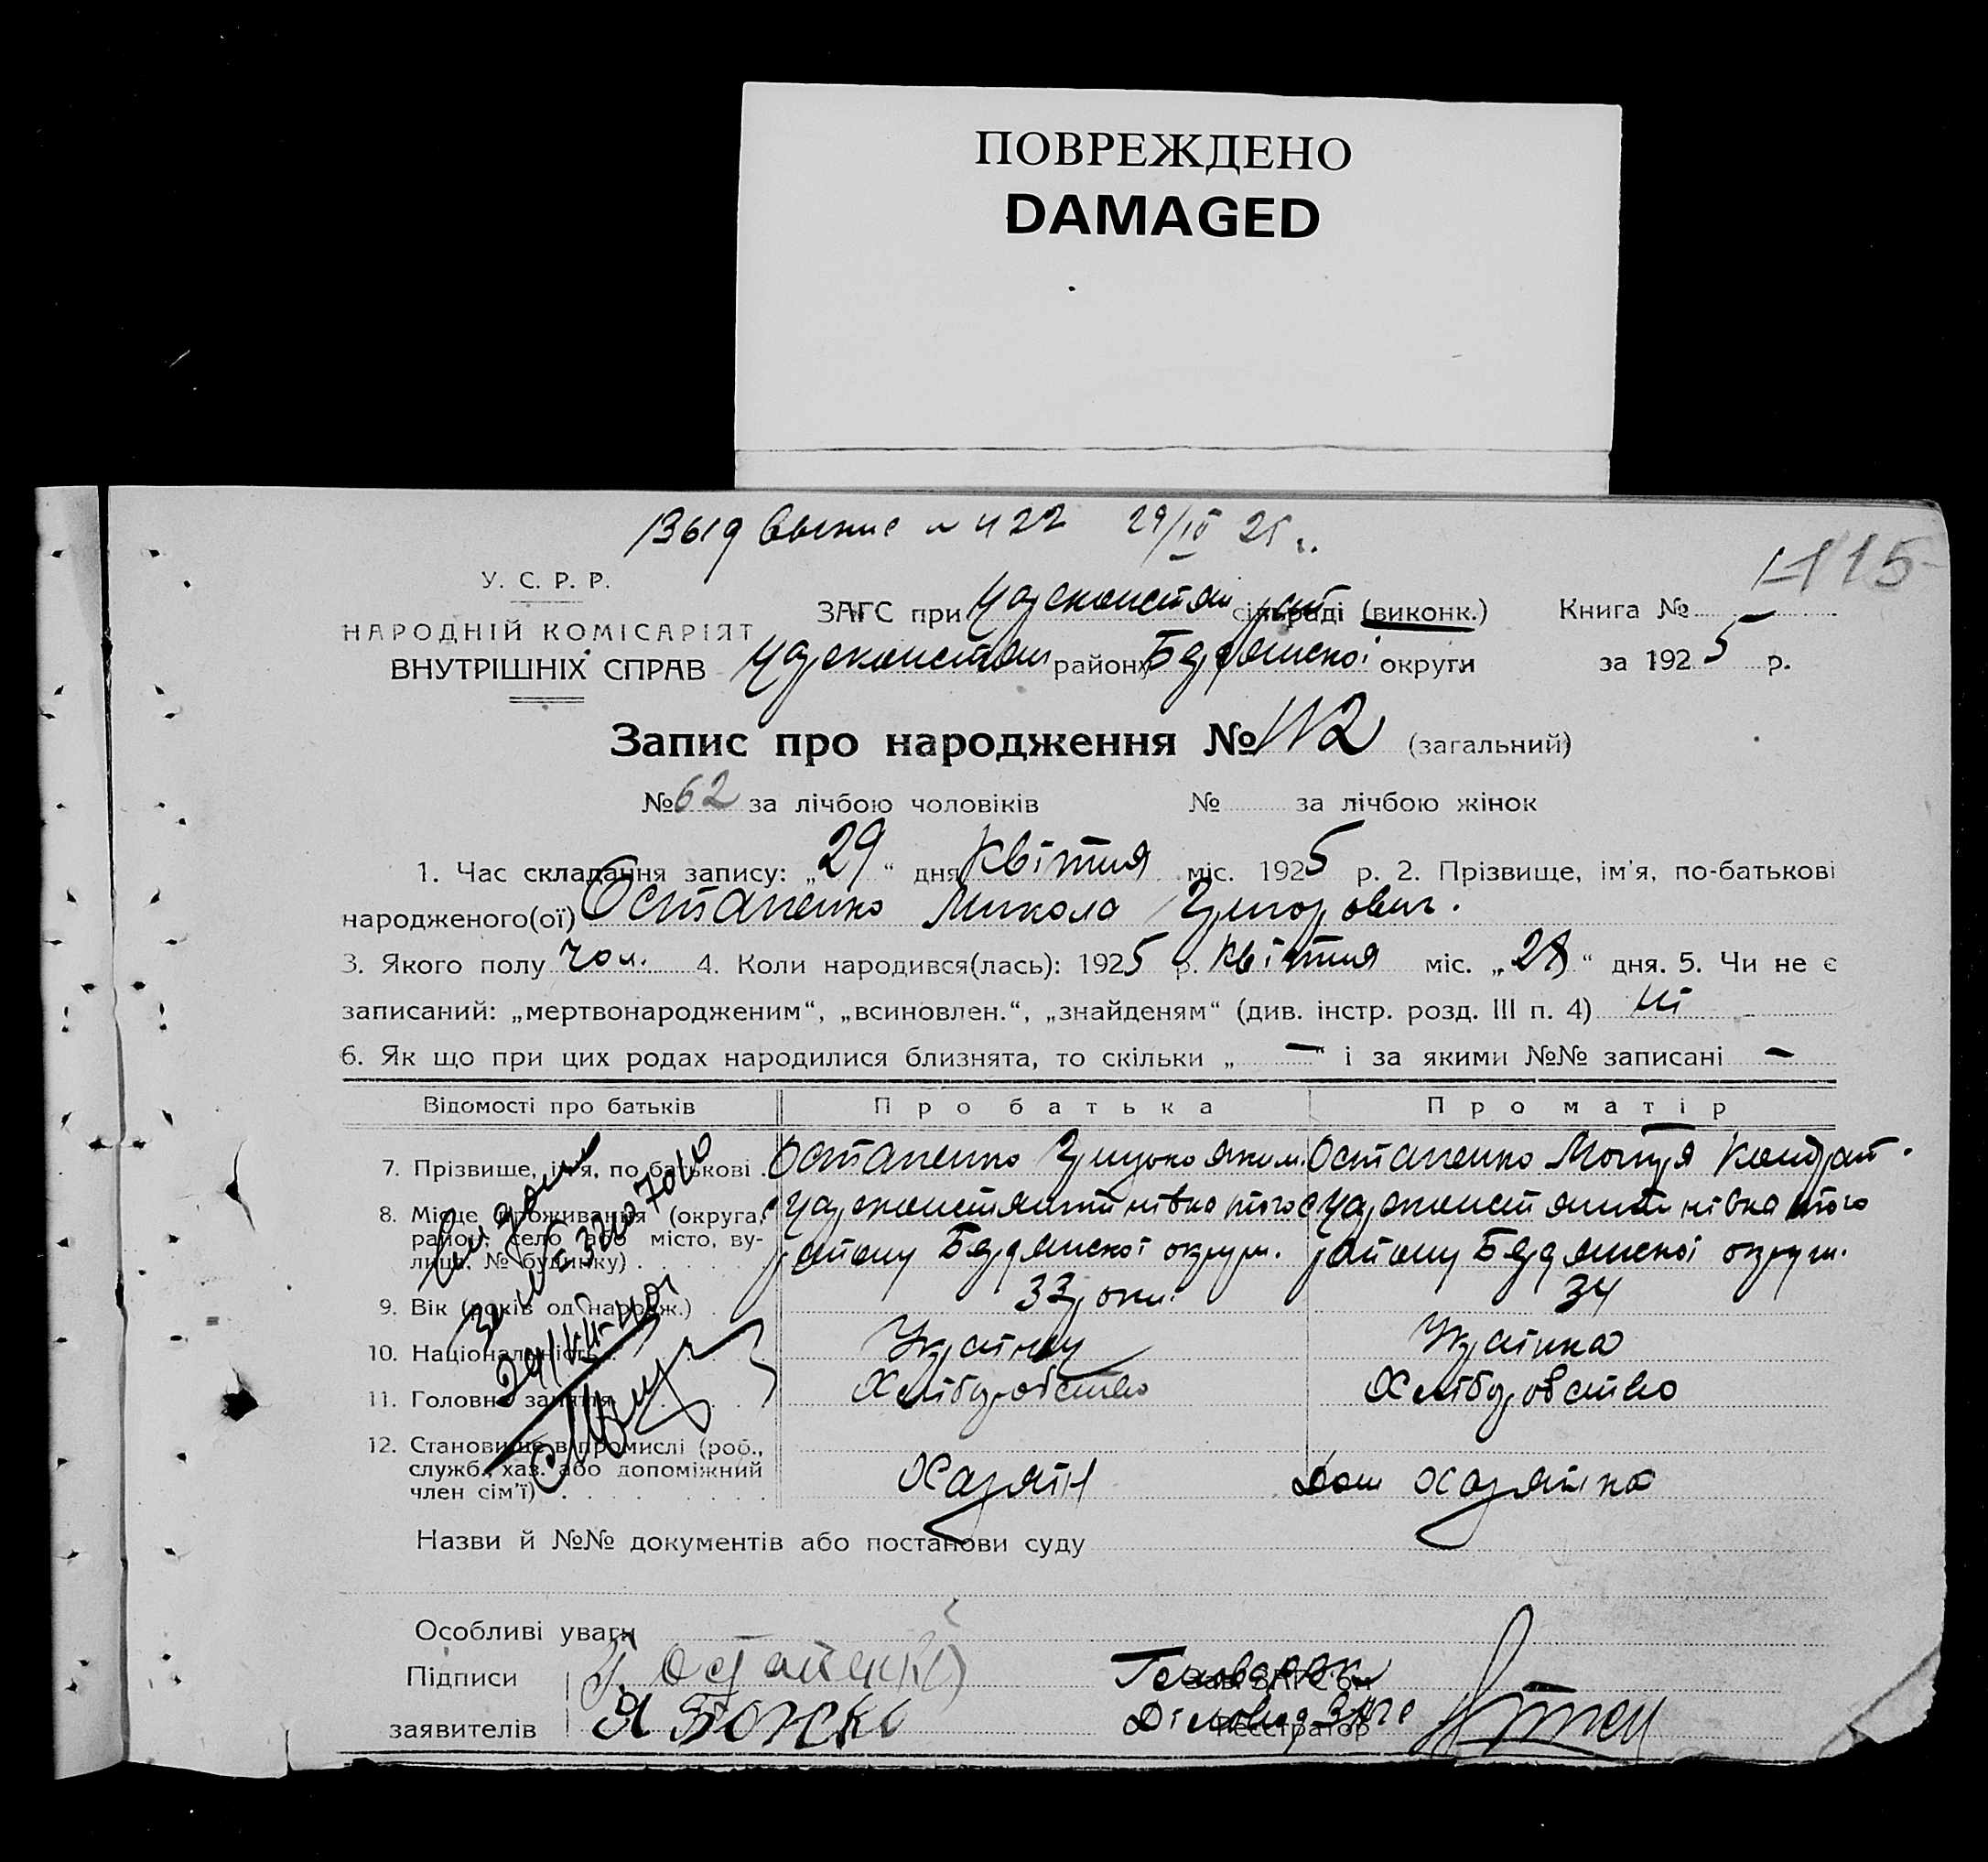 ПОВРЕЖДЕНО
DAMAGED
29/IV 25 г.
115
У. С. Р. Р.
НАРОДНІЙ КОМІСАРІЯТ
ВНУТРІШНІХ СПРАВ
ЗАГС при Цареконстян рай сільраді (виконк.) Книга №
Цареконстян району Бердянської округи за 1925 р.
Запис про народження № 112 (загальний)
№ 62 за лічбою чоловіків № за лічбою жінок
1. Час складання запису: „29“ дня Квітня міс. 1925 р. 2. Прізвище, ім'я, по-батькові
народженого(ої) Остапенко Микола Григорович.
3. Якого полу чол. 4. Коли народився(лась): 1925 р. Квітня міс. „28“ дня. 5. Чи не є
записаний: „мертвонародженим“, „всиновлен.“, „знайденям“ (див. інстр. розд. III п. 4) ні
6. Як що при цих родах народилися близнята, то скільки „—“ і за якими №№ записані —
Відомості про батьків Про батька Про матір
7. Прізвище, ім'я, по батькові Остапенко Грицько Яким. Остапенко Мотря Кондрат.
8. Місце проживання (округа, район, село або місто, вулиця, № будинку) с Цареконстянтинівка того с Цареконстянтинівка того
району Бердянської округи. району Бердянської округи.
9. Вік (років од народж.) 33 роки. 34
10. Національність Українец Українка
11. Головне заняття Хліборобство Хліборобство
12. Становище в промислі (роб., служб., хаз. або допоміжний член сім'ї) Хазяїн Дом хазяйка
Назви й №№ документів або постанови суду
Особливі уваги
Підписи Г. Остапенко Зав. ЗАГС'ом
заявителів Діловод ЗАГС Реєстратор